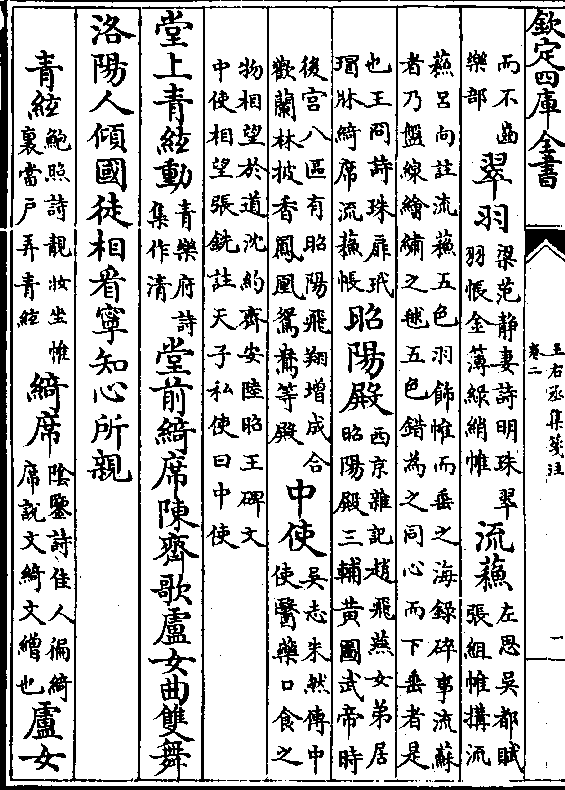 欽定四庫全書
王右丞集箋注
卷二
一
而不齒
樂部
翠羽
梁范静妻詩明珠翠
羽帳金薄緑綃帷
流蘇
左思吳都賦
張組帷搆流
蘇吕向註流蘇五色羽飾帷而垂之海録碎事流蘇
者乃盤線繪繡之毬五色錯為之同心而下垂者是
也王冏詩珠扉玳
瑁牀綺席流蘇帳
昭陽殿
西京雜記趙飛燕女弟居
昭陽殿三輔黄圖武帝時
後宫八區有昭陽飛翔增成合
歡蘭林披香鳳凰鴛鴦等殿
中使
吳志朱然傳中
使醫藥口食之
物相望於道沈約齊安陸昭王碑文
中使相望張銑註天子私使曰中使
堂上青絃動
青樂府詩
集作清
堂前綺席陳齊歌盧女曲雙舞
洛陽人傾國徒相看寧知心所親
青絃
鮑照詩靚妝坐帷
裏當户弄青絃
綺席
陰鏗詩佳人徧綺
席說文綺文繒也
盧女